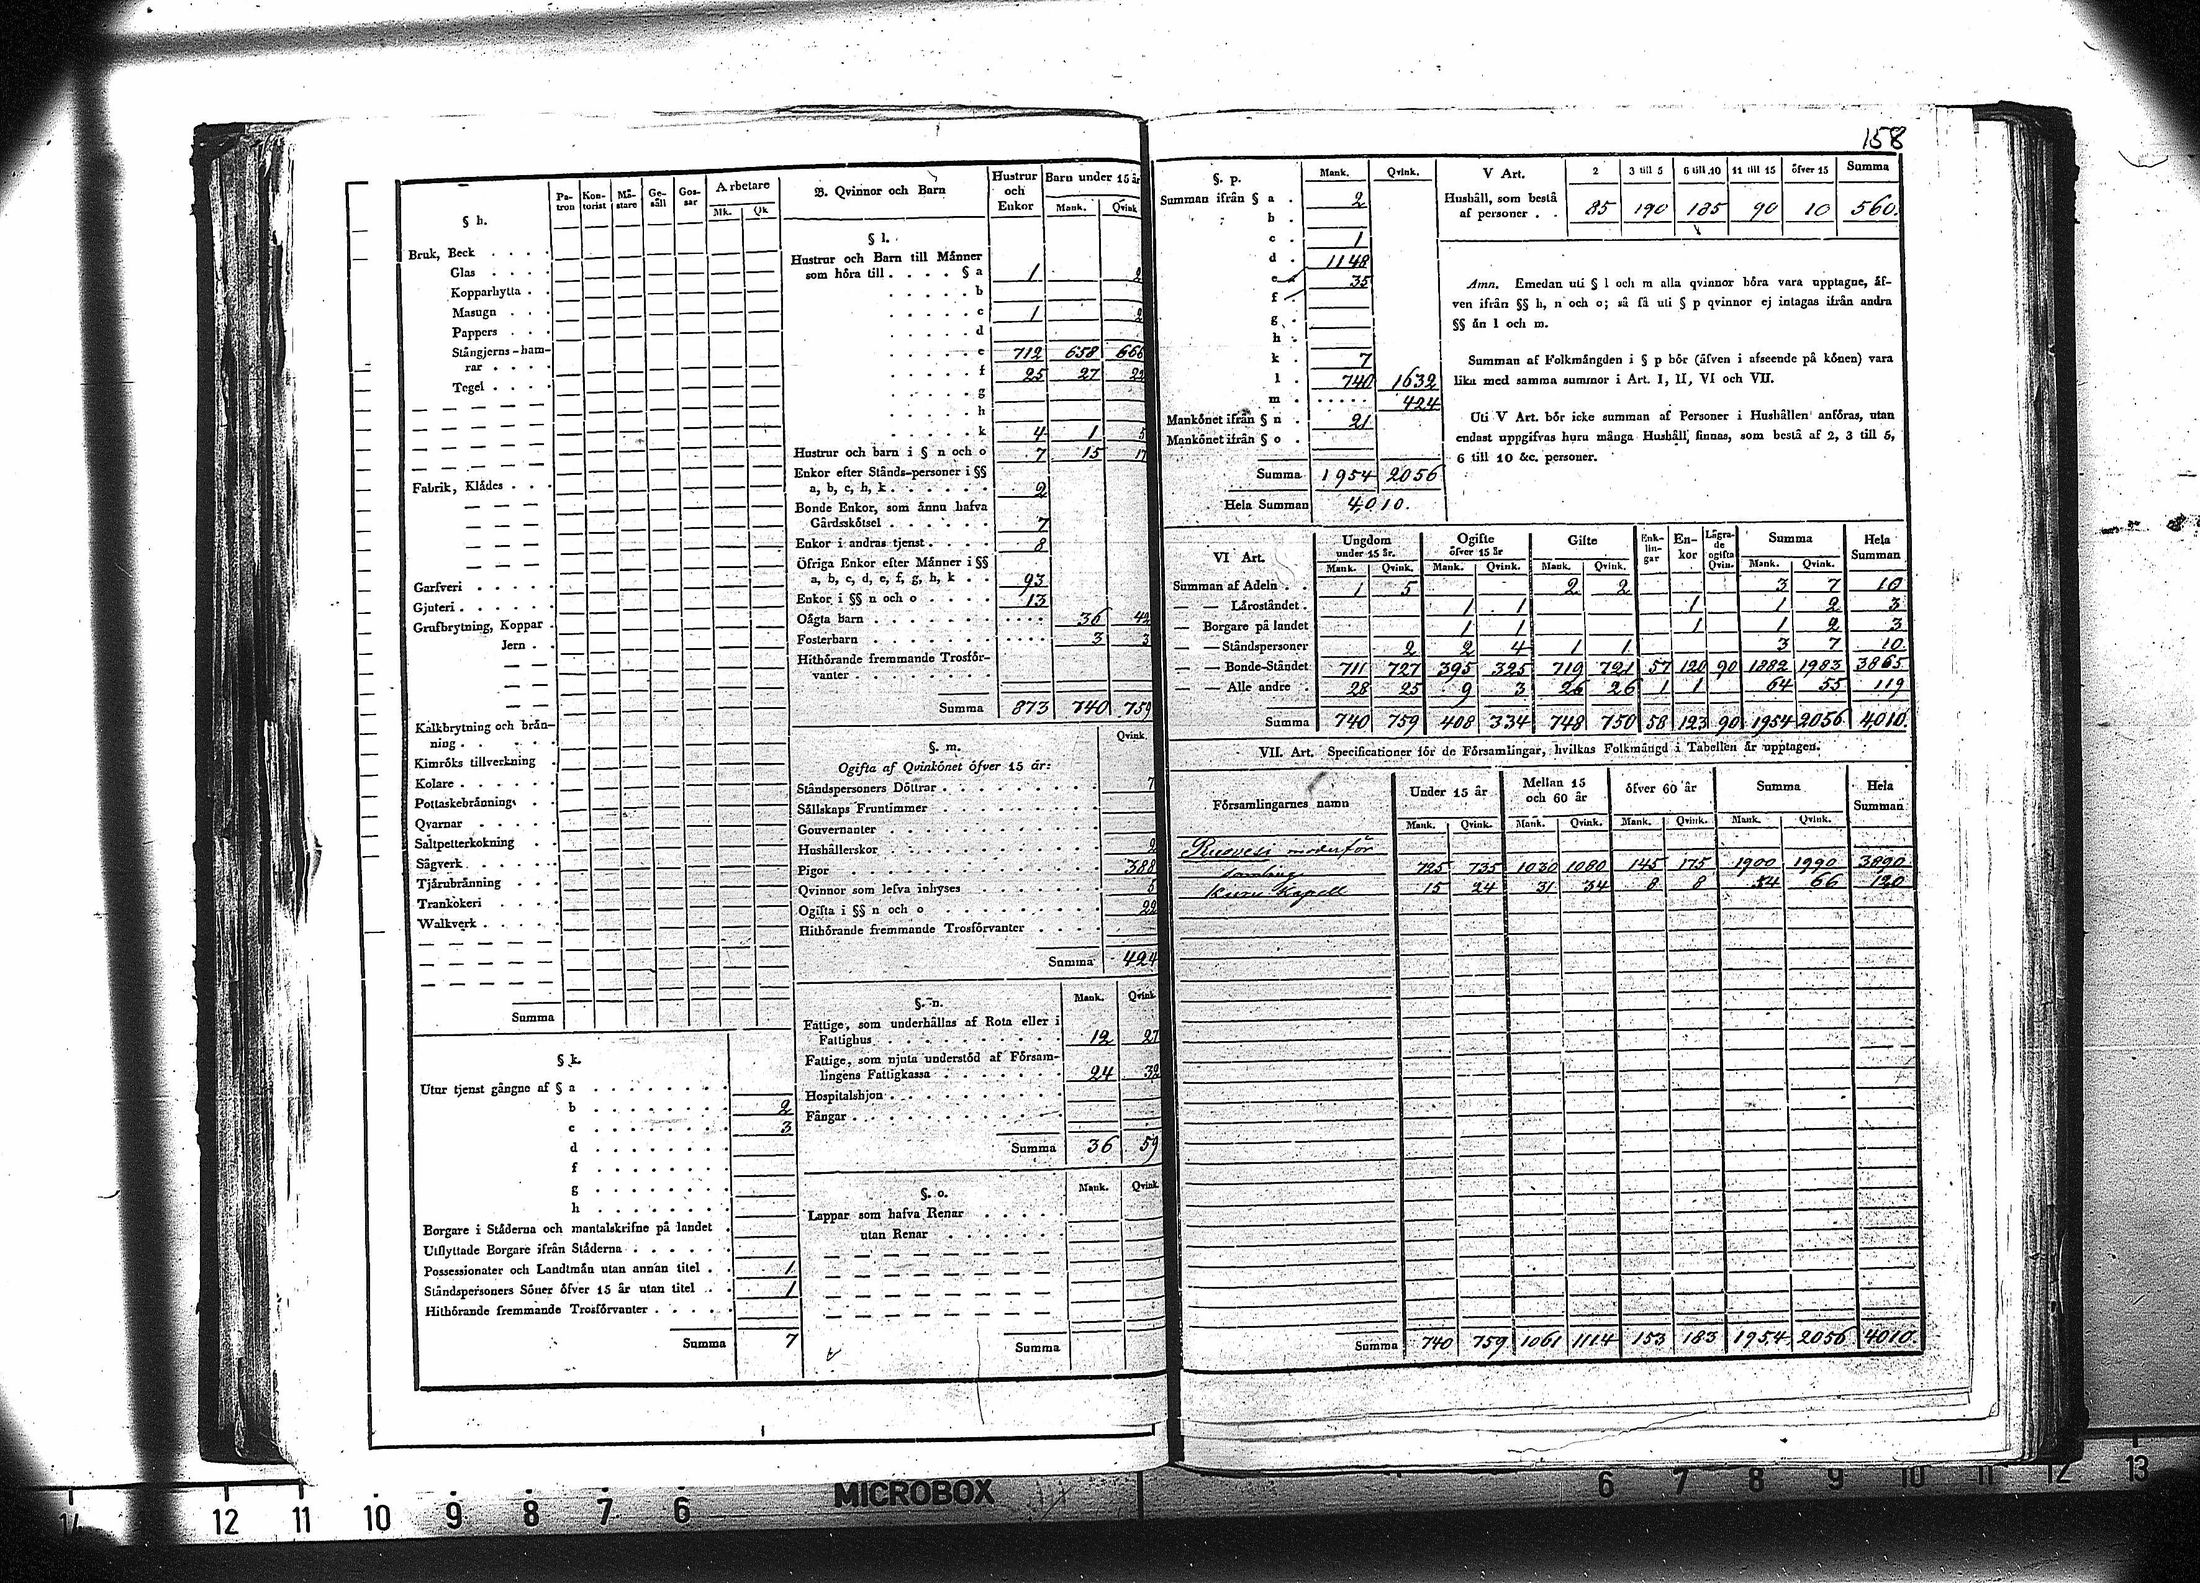 158
§ h.
Pa-tron Kon-torist Mä-stare Ge-säll Gos-sar Arbetare
Mk. Qk
Bruk, Beck . . . .
Glas . . . .
Kopparhytta . .
Masugn . . .
Pappers . . .
Stångjerns-ham-
rar . . . .
Tegel . . . .
Fabrik, Klädes . . .
Garfveri . . . . .
Gjuteri . . . . . .
Grufbrytning, Koppar .
Jern . .
Kalkbrytning och brän-
ning . . . . .
Kimröks tillverkning .
Kolare . . . . . .
Pottaskebränning . .
Qvarnar . . . . .
Saltpetterkokning . .
Sågverk . . . . .
Tjärubränning . . .
Trankokeri . . . .
Walkverk . . . . .
Summa
§ k.
Utur tjenst gångne af § a . . . . . . . .
b . . . . . . . . 2
c . . . . . . . . 3
d . . . . . . . .
f . . . . . . . .
g . . . . . . . .
h . . . . . . . .
Borgare i Städerna och mantalskrifne på landet .
Utflyttade Borgare ifrån Städerna . . . . . .
Possessionater och Landtmän utan annan titel . . 1
Ståndspersoners Söner öfver 15 år utan titel . . 1
Hithörande fremmande Trosförvanter . . . . .
Summa 7
B. Qvinnor och Barn
Hustrur och Enkor Barn under 15 år
Mank. Qvink
§ l.
Hustrur och Barn till Männer
som höra till . . . . § a 1 2
. . . . . b
. . . . . c 1 2
. . . . . d
. . . . . e 712 658 666
. . . . . f 25 27 22
. . . . . g
. . . . . h
. . . . . k 4 1 5
Hustrur och barn i § n och o 7 15 17
Enkor efter Stånds-personer i §§
a, b, c, h, k . . . . . . 2
Bonde Enkor, som ännu hafva
Gårdsskötsel . . . . . . 7
Enkor i andras tjenst . . . . 8
Öfriga Enkor efter Männer i §§
a, b, c, d, e, f, g, h, k . . 93
Enkor i §§ n och o . . . . 13
Oägta barn . . . . . . . . . . . 36 42
Fosterbarn . . . . . . . . . . . 3 3
Hithörande fremmande Trosför-
vanter . . . . . . . .
Summa 873 740 759
§. m.
Qvink.
Ogifta af Qvinkönet öfver 15 år:
Ståndspersoners Döttrar . . . . . . . . . 7
Sällskaps Fruntimmer . . . . . . . . .
Gouvernanter . . . . . . . . . . .
Hushållerskor . . . . . . . . . . . 2
Pigor . . . . . . . . . . . . . 388
Qvinnor som lefva inhyses . . . . . . . 5
Ogifta i §§ n och o . . . . . . . . . 22
Hithörande fremmande Trosförvanter . . . .
Summa 424
§. n.
Mank. Qvink
Fattige, som underhållas af Rota eller i
Fattighus . . . . . . . . . . 12 27
Fattige, som njuta understöd af Försam-
lingens Fattigkassa . . . . . . . 24 32
Hospitalshjon . . . . . . . . . .
Fångar . . . . . . . . . . . .
Summa 36 59
§. o.
Mank. Qvink
Lappar som hafva Renar . . . . .
utan Renar . . . . . . .
Summa
§. p.
Mank. Qvink.
Summan ifrån § a . 2
b .
c . 1
d . 1148
e . 35
f .
g .
h .
k . 7
l . 740 1632
m . . . . . . 424
Mankönet ifrån § n . 21
Mankönet ifrån § o .
Summa 1954 2056
Hela Summan 4010.
V Art. 2 3 till 5 6 till 10 11 till 15 öfver 15 Summa
Hushåll, som bestå
af personer . . 85 190 185 90 10 560.
Anm. Emedan uti § l och m alla qvinnor böra vara upptagne, äf-
ven ifrån §§ h, n och o; så få uti § p qvinnor ej intagas ifrån andra
§§ än l och m.
Summan af Folkmängden i § p bör (äfven i afseende på könen) vara
lika med samma summor i Art. I, II, VI och VII.
Uti V Art. bör icke summan af Personer i Hushållen anföras, utan
endast uppgifvas huru många Hushåll, finnas, som bestå af 2, 3 till 5,
6 till 10 &c. personer.
VI Art. Ungdom under 15 år. Ogifte öfver 15 år Gifte Enk-lin-gar En-kor Lägra-de ogifta Qvin. Summa Hela Summan
Mank. Qvink. Mank. Qvink. Mank. Qvink. Mank. Qvink.
Summan af Adeln . . 1 5 2 2 3 7 10
— — Läroståndet . 1 1 1 1 2 3
— Borgare på landet 1 1 1 1 2 3
— — Ståndspersoner 2 2 4 1 1 3 7 10
— — Bonde-Ståndet 711 727 395 325 719 721 57 120 90 1882 1983 3865
— — Alle andre . 28 25 9 3 26 26 1 1 64 55 119
Summa 740 759 408 334 748 750 58 123 90 1954 2056 4010.
VII. Art. Specificationer för de Församlingar, hvilkas Folkmängd i Tabellen är upptagen.
Församlingarnes namn Under 15 år Mellan 15 och 60 år öfver 60 år Summa Hela Summan
Mank. Qvink. Mank. Qvink. Mank. Qvink. Mank. Qvink.
Ruovesi moderför
samling 725 735 1030 1080 145 175 1900 1990 3890
Kuru Kapell 15 24 31 34 8 8 54 66 120
Summa 740 759 1061 1114 153 183 1954 2056 4010.
MICROBOX
14 12 11 10 9 8 7 6 6 7 8 9 10 11 12 13